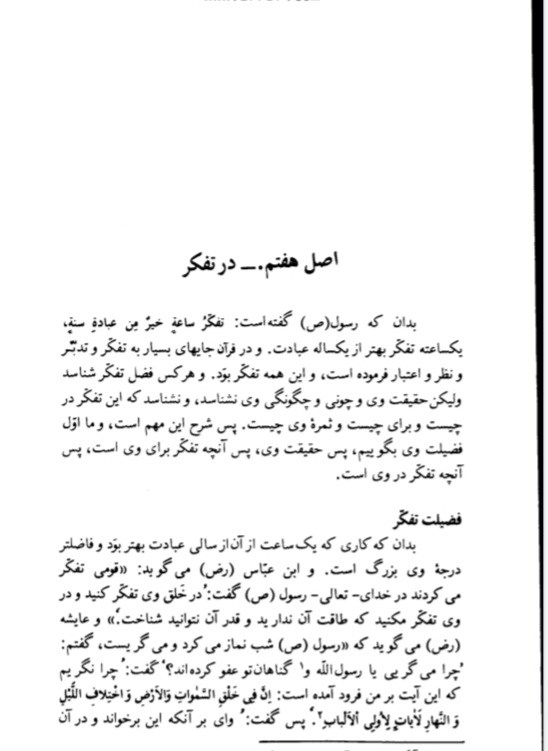 اصل هفتم. ــ در تفکر
بدان که رسول(ص) گفته‌است: تفکّرُ ساعةٍ خیرٌ مِن عبادةِ سنةٍ،
یکساعته تفکّر بهتر از یکساله عبادت. و در قرآن جایهای بسیار به تفکّر و تدبّر
و نظر و اعتبار فرموده است، و این همه تفکّر بوَد. و هرکس فضل تفکّر شناسد
ولیکن حقیقت وی و چونی و چگونگی وی نشناسد، و نشناسد که این تفکّر در
چیست و برای چیست و ثمرهٔ وی چیست. پس شرح این مهم است، و ما اوّل
فضیلت وی بگوییم، پس حقیقت وی، پس آنچه تفکّر برای وی است، پس
آنچه تفکّر در وی است.
فضیلت تفکّر
بدان که کاری که یک ساعت از آن از سالی عبادت بهتر بوَد و فاضلتر
درجهٔ وی بزرگ است. و ابن عبّاس (رض) می‌گوید: «قومی تفکّر
می‌کردند در خدای- تعالی- رسول (ص) گفت: ‛در خَلق وی تفکّر کنید و در
وی تفکّر مکنید که طاقت آن ندارید و قدر آن نتوانید شناخت.’» و عایشه
(رض) می‌گوید که «رسول (ص) شب نماز می‌کرد و می‌گریست، گفتم:
‛چرا می‌گریی یا رسول‌اللّه و۱ گناهان تو عفو کرده‌اند؟’ گفت: ‛چرا نگریم
که این آیت بر من فرود آمده است: اِنَّ فِی خَلْقِ السَّمٰوٰاتِ وَالْاَرْضِ وَ اخْتِلافِ اللَّیْلِ
وَ النَّهارِ لَاٰیاتٍ لِاُولِی الْاَلْبابِ۲.’ پس گفت: ‛وای بر آنکه این برخواند و در آن